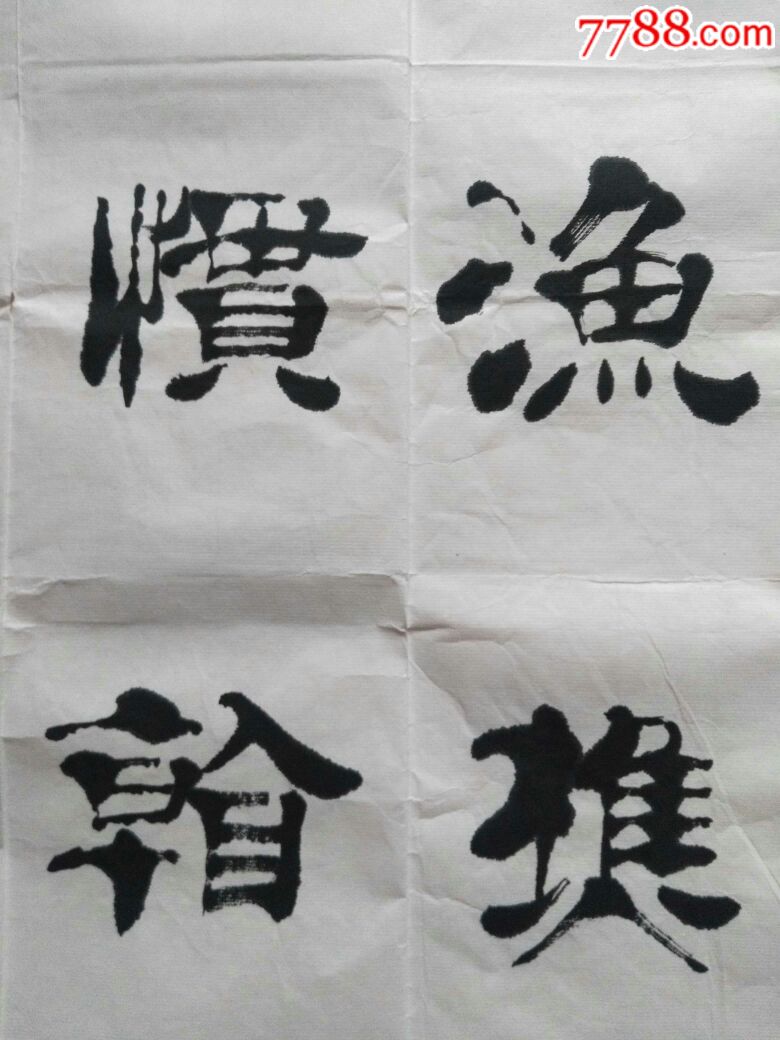 7788.com
漁樵
慣看